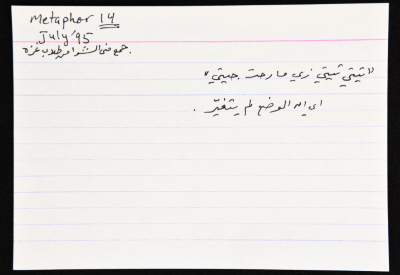 Metaphor 14
July '95
جمع منى الشوا من طلاب غزة.
"تيتي تيتي زي ما رحت جيتي"
اي ان الوضع لم يتغيّر.